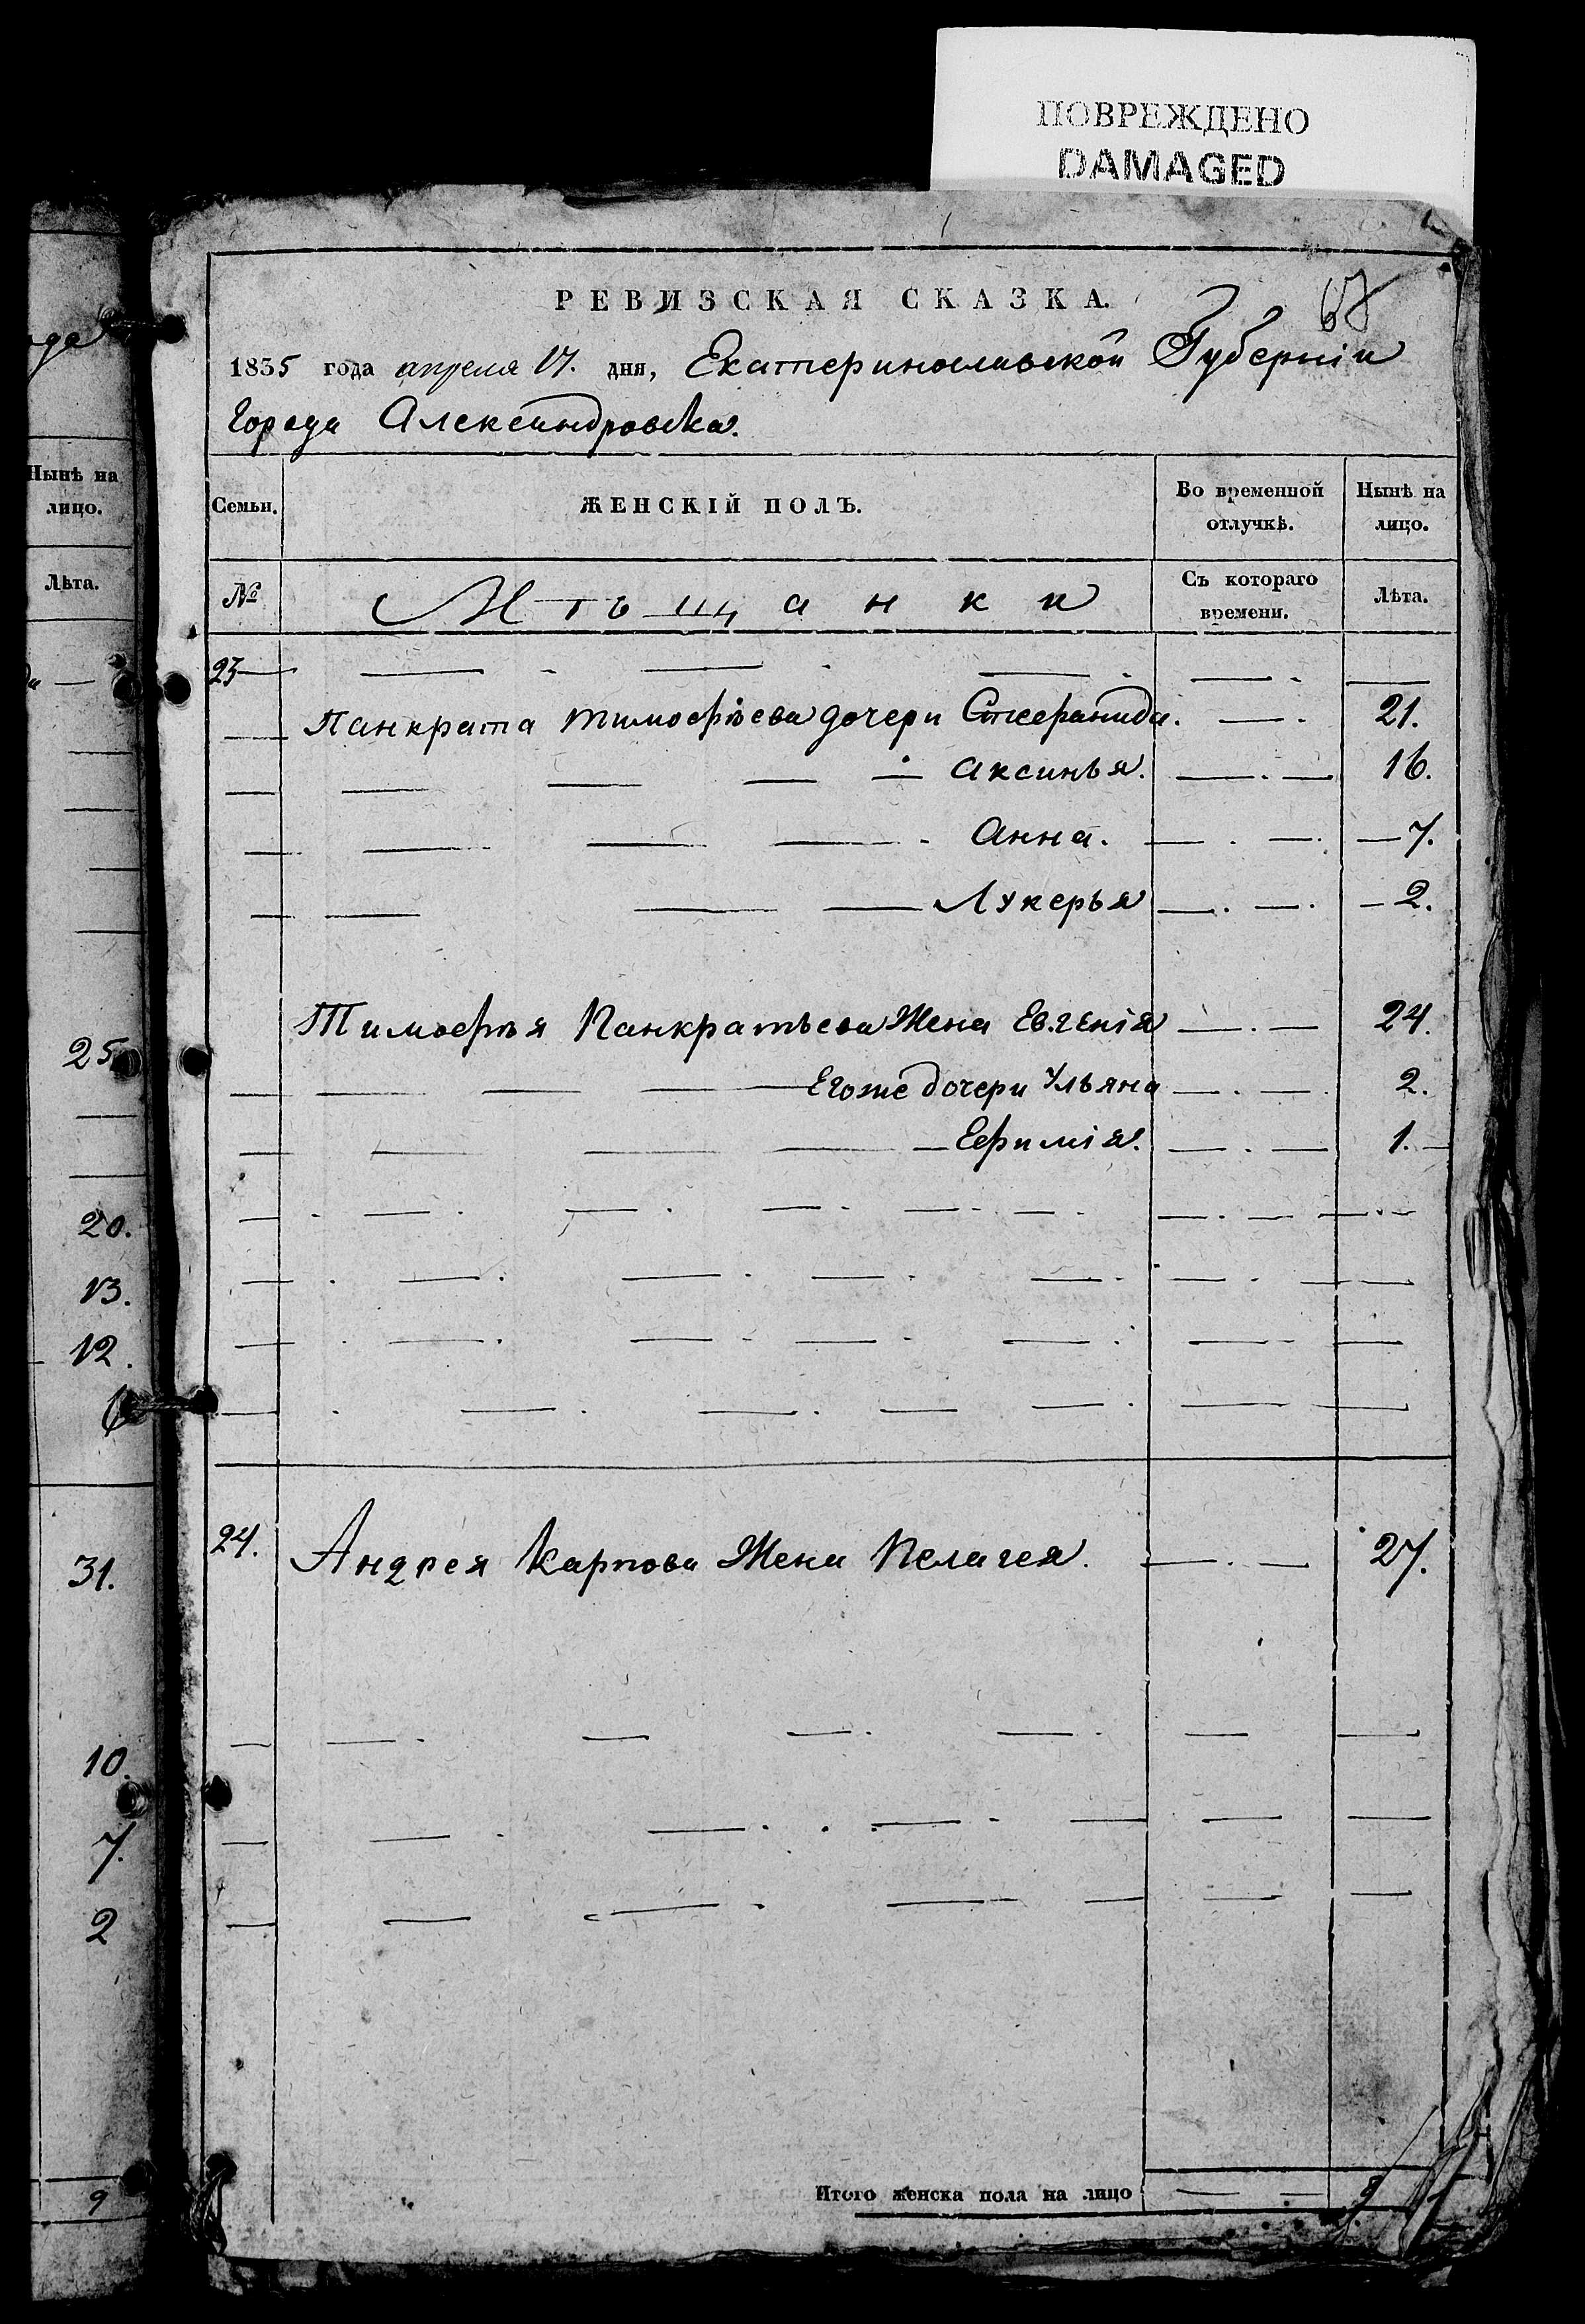 ПОВРЕЖДЕНО
DAMAGED
РЕВИЗСКАЯ СКАЗКА.
1835 года апреля 17. дня, Екатеринославской Губерніи
города Александровска.
Нынѣ на
лицо.
Лѣта.
25
20.
13.
12.
31.
10.
7.
2
9
Семьи.
ЖЕНСКІЙ ПОЛЪ.
Во временной
отлучкѣ.
Нынѣ на
лицо.
№
Мѣщанки
Съ котораго
времени.
Лѣта.
23
Панкрата Тимофѣева дочери Стефанида. — . 21.
— — — Аксинья. — . — 16.
— — — Анна. — . — 7.
— — — Лукерья — . — . 2.
Тимофѣя Панкратьева Жена Евгенія — . — 24.
— — — Егоже дочери Ульяна — . — . 2.
— — — Ефимія. — . — 1.
24. Андрея Карпова Жена Пелагея. — . — 27.
Итого женска пола на лицо — — 8